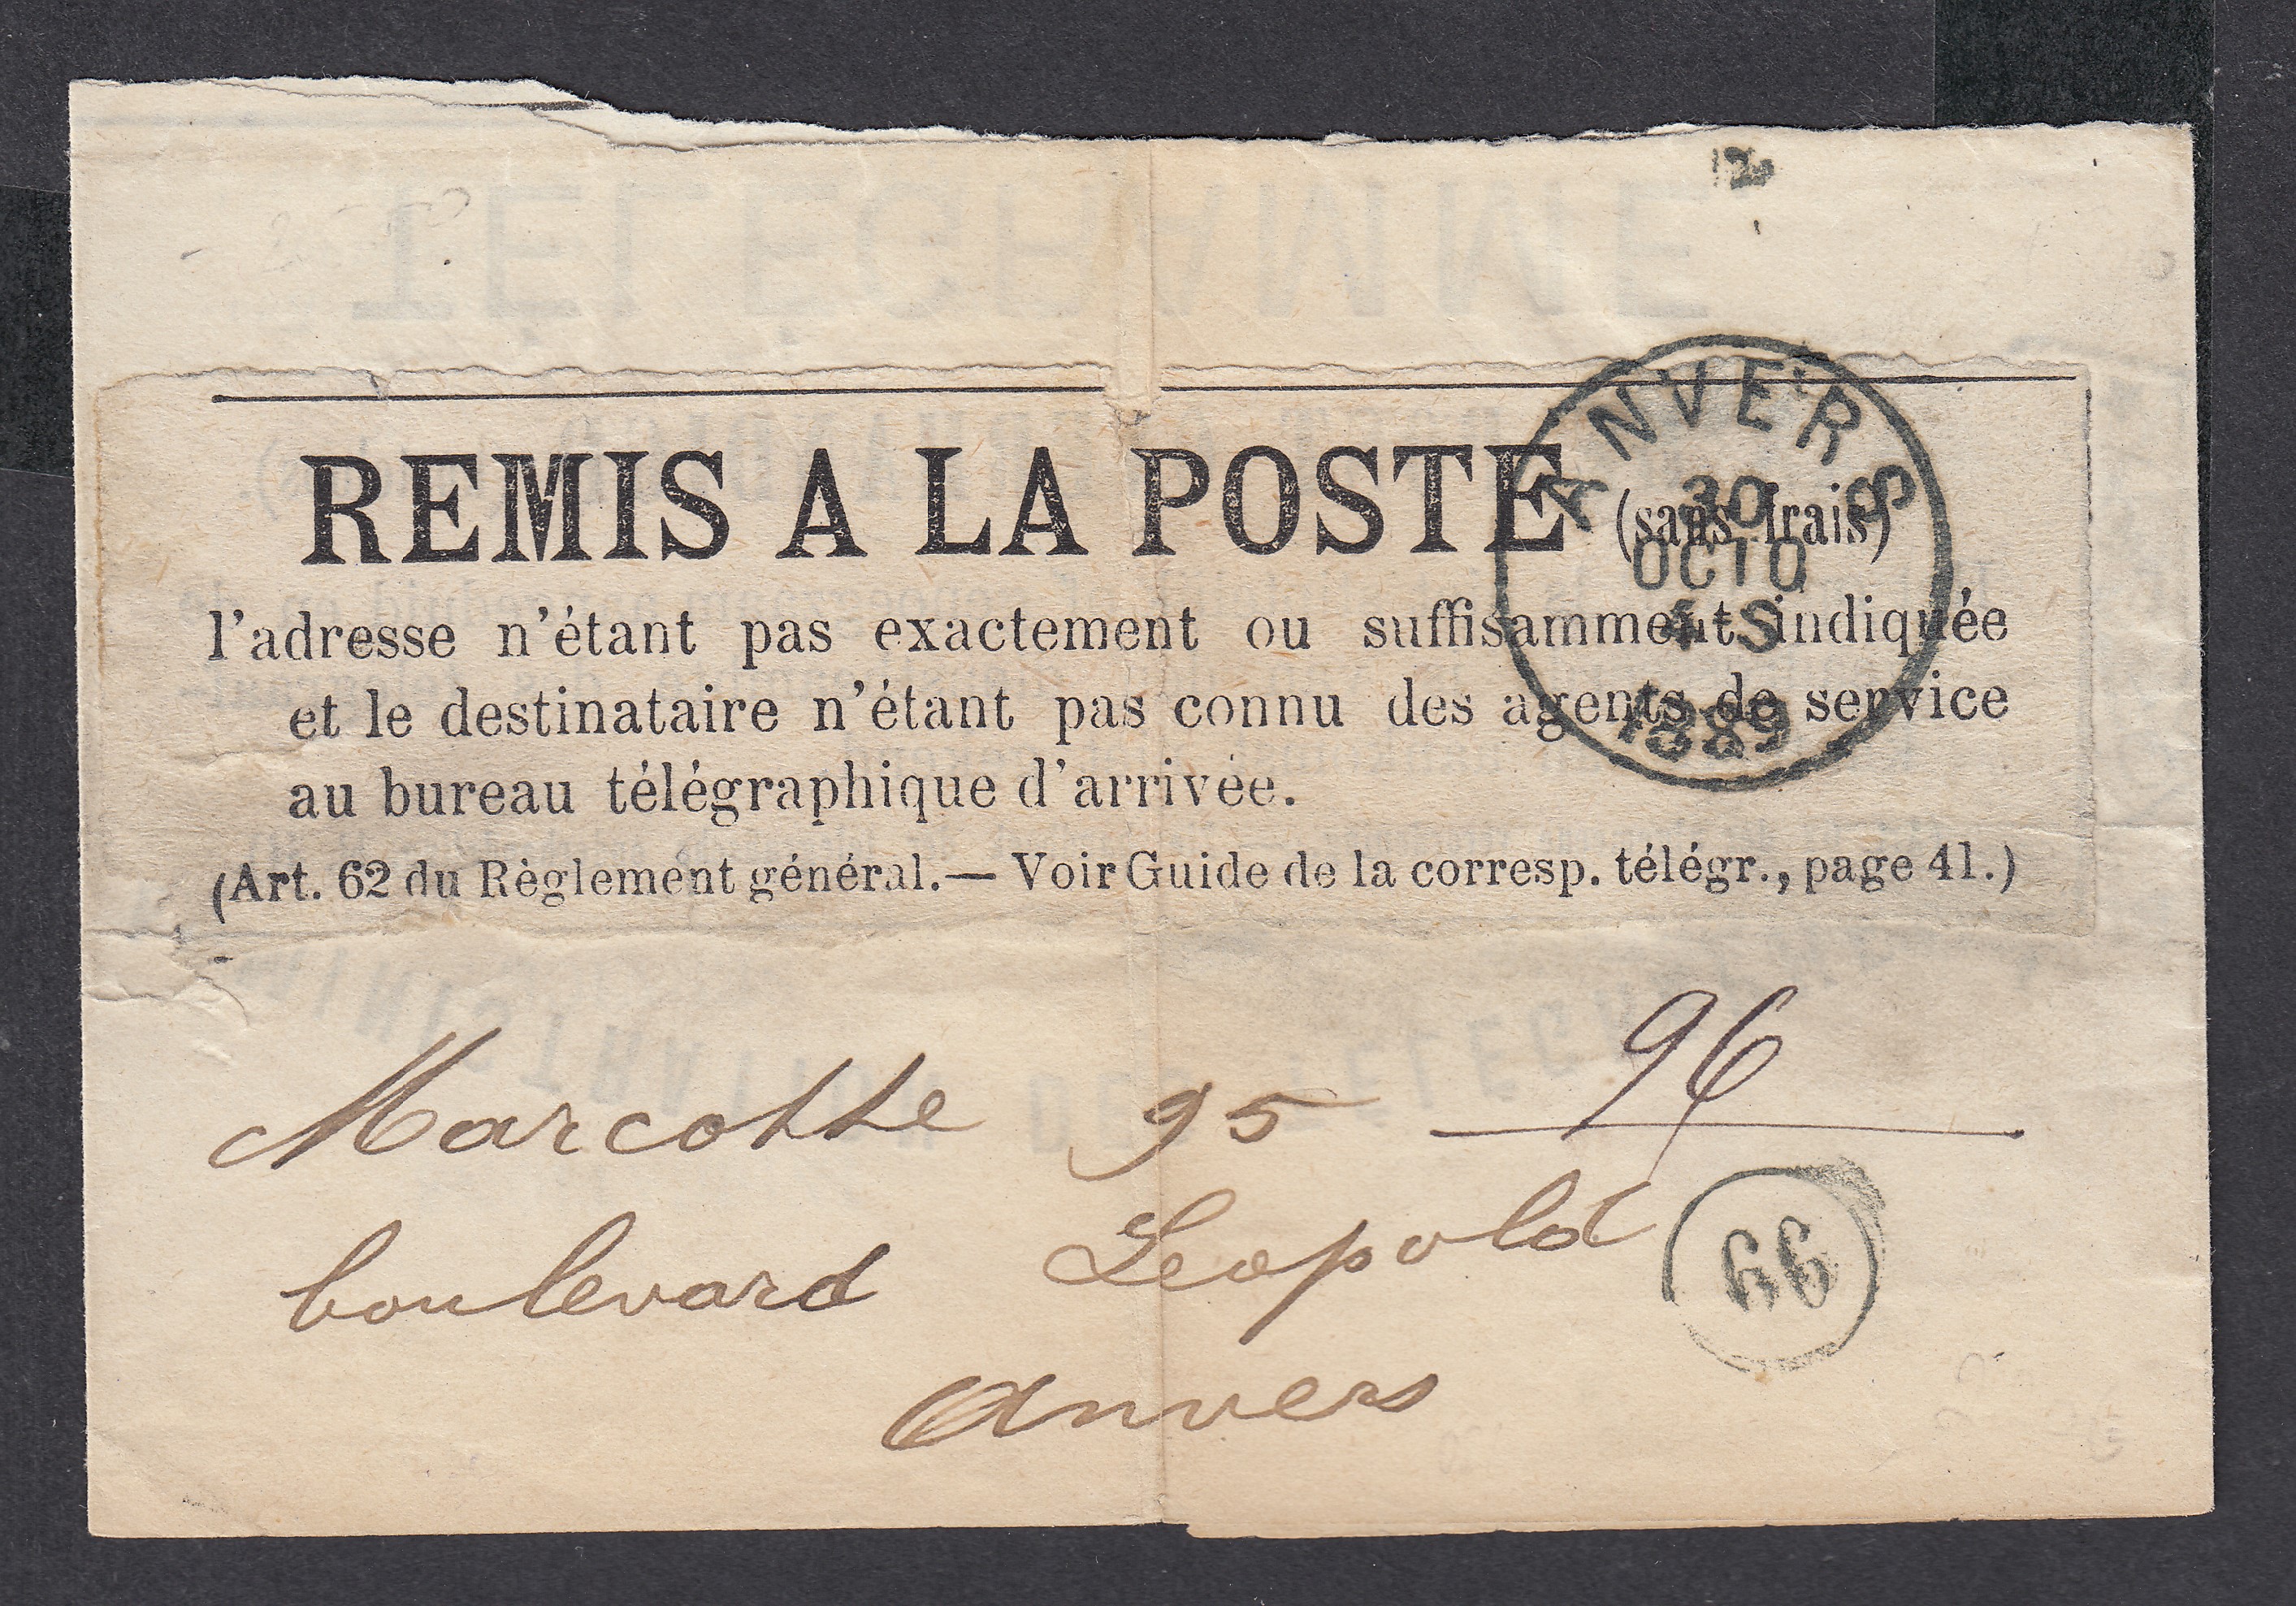 TÉLÉGRAMME
REMIS A LA POSTE (sans frais)
l'adresse n'étant pas exactement ou suffisamment indiquée
et le destinataire n'étant pas connu des agents de service
au bureau télégraphique d'arrivée.
(Art. 62 du Règlement général.— Voir Guide de la corresp. télégr., page 41.)
ANVERS
30
OCTO
4-S
1889
96
Marcotte 95
boulevard Leopold
Anvers
99